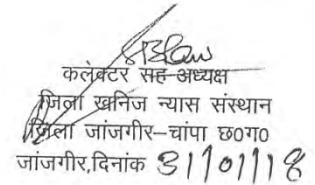 कलेक्टर सह अध्यक्ष
जिला खनिज न्यास संस्थान
जिला जांजगीर–चांपा छ०ग०
जांजगीर,दिनांक 31/01/18